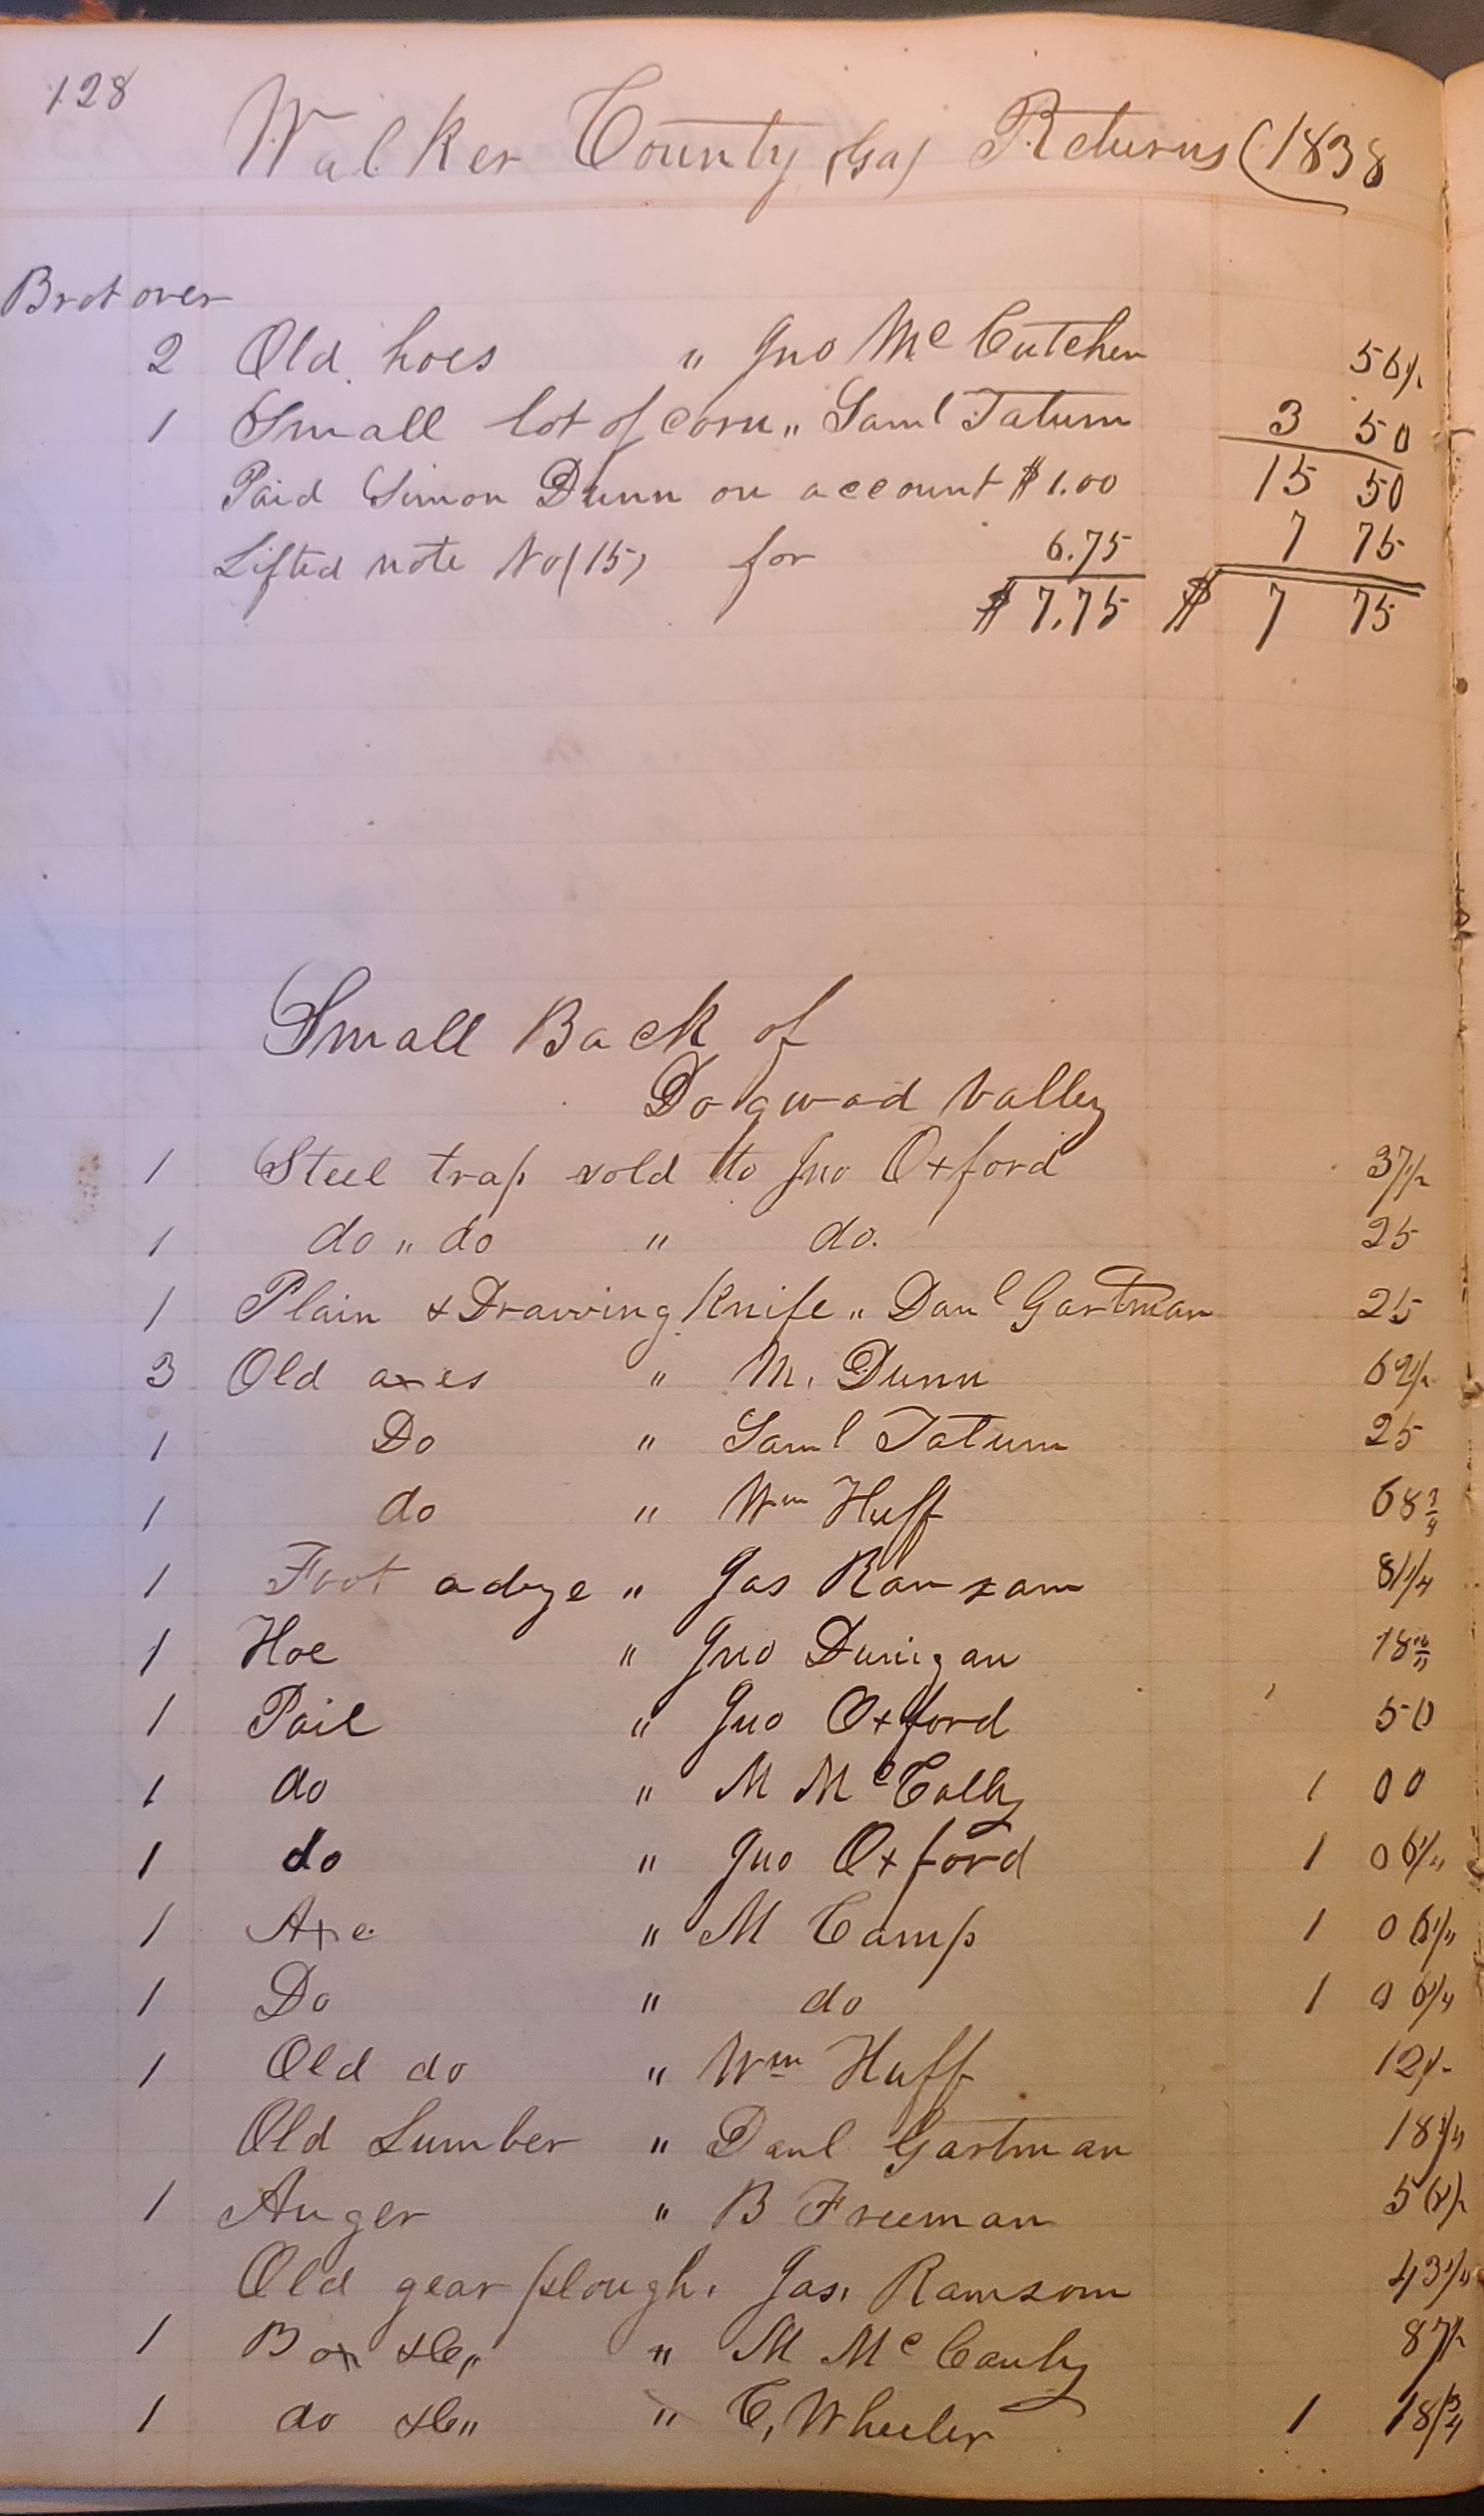 128
Walker County (Ga) Returns (1838
Brot over
2 Old hoes " Jno McCutchen 56¼
1 Small lot of corn " Saml Tatum 3 50
Paid Simon Dunn on account $1.00 15 50
Lifted note No (15) for 6.75 7 75
$7.75 $ 7 75
Small Back of
Dogwood Valley
1 Steel trap sold to Jno Oxford 37½
1 do " do " do. 25
1 Plain & Drawing Knife " Danl Gartman 25
3 Old axes " M. Dunn 62½
1 Do " Saml Tatum 25
1 do " Wm Huff 68¾
1 Foot adze " Jas Ransam 81¼
1 Hoe " Jno Dunigan 18¾
1 Pail " Jno Oxford 50
1 do " M McCally 1 00
1 do " Jno Oxford 1 06¼
1 Axe " M Camp 1 06¼
1 Do " do 1 06¼
1 Old do " Wm Huff 12½
Old Lumber " Danl Gartman 18¾
1 Auger " B Freeman
Old gear plough. Jas. Ramsom 43¾
1 Box &c " M McCauly 87½
1 do &c " C, Wheeler 1 18¾